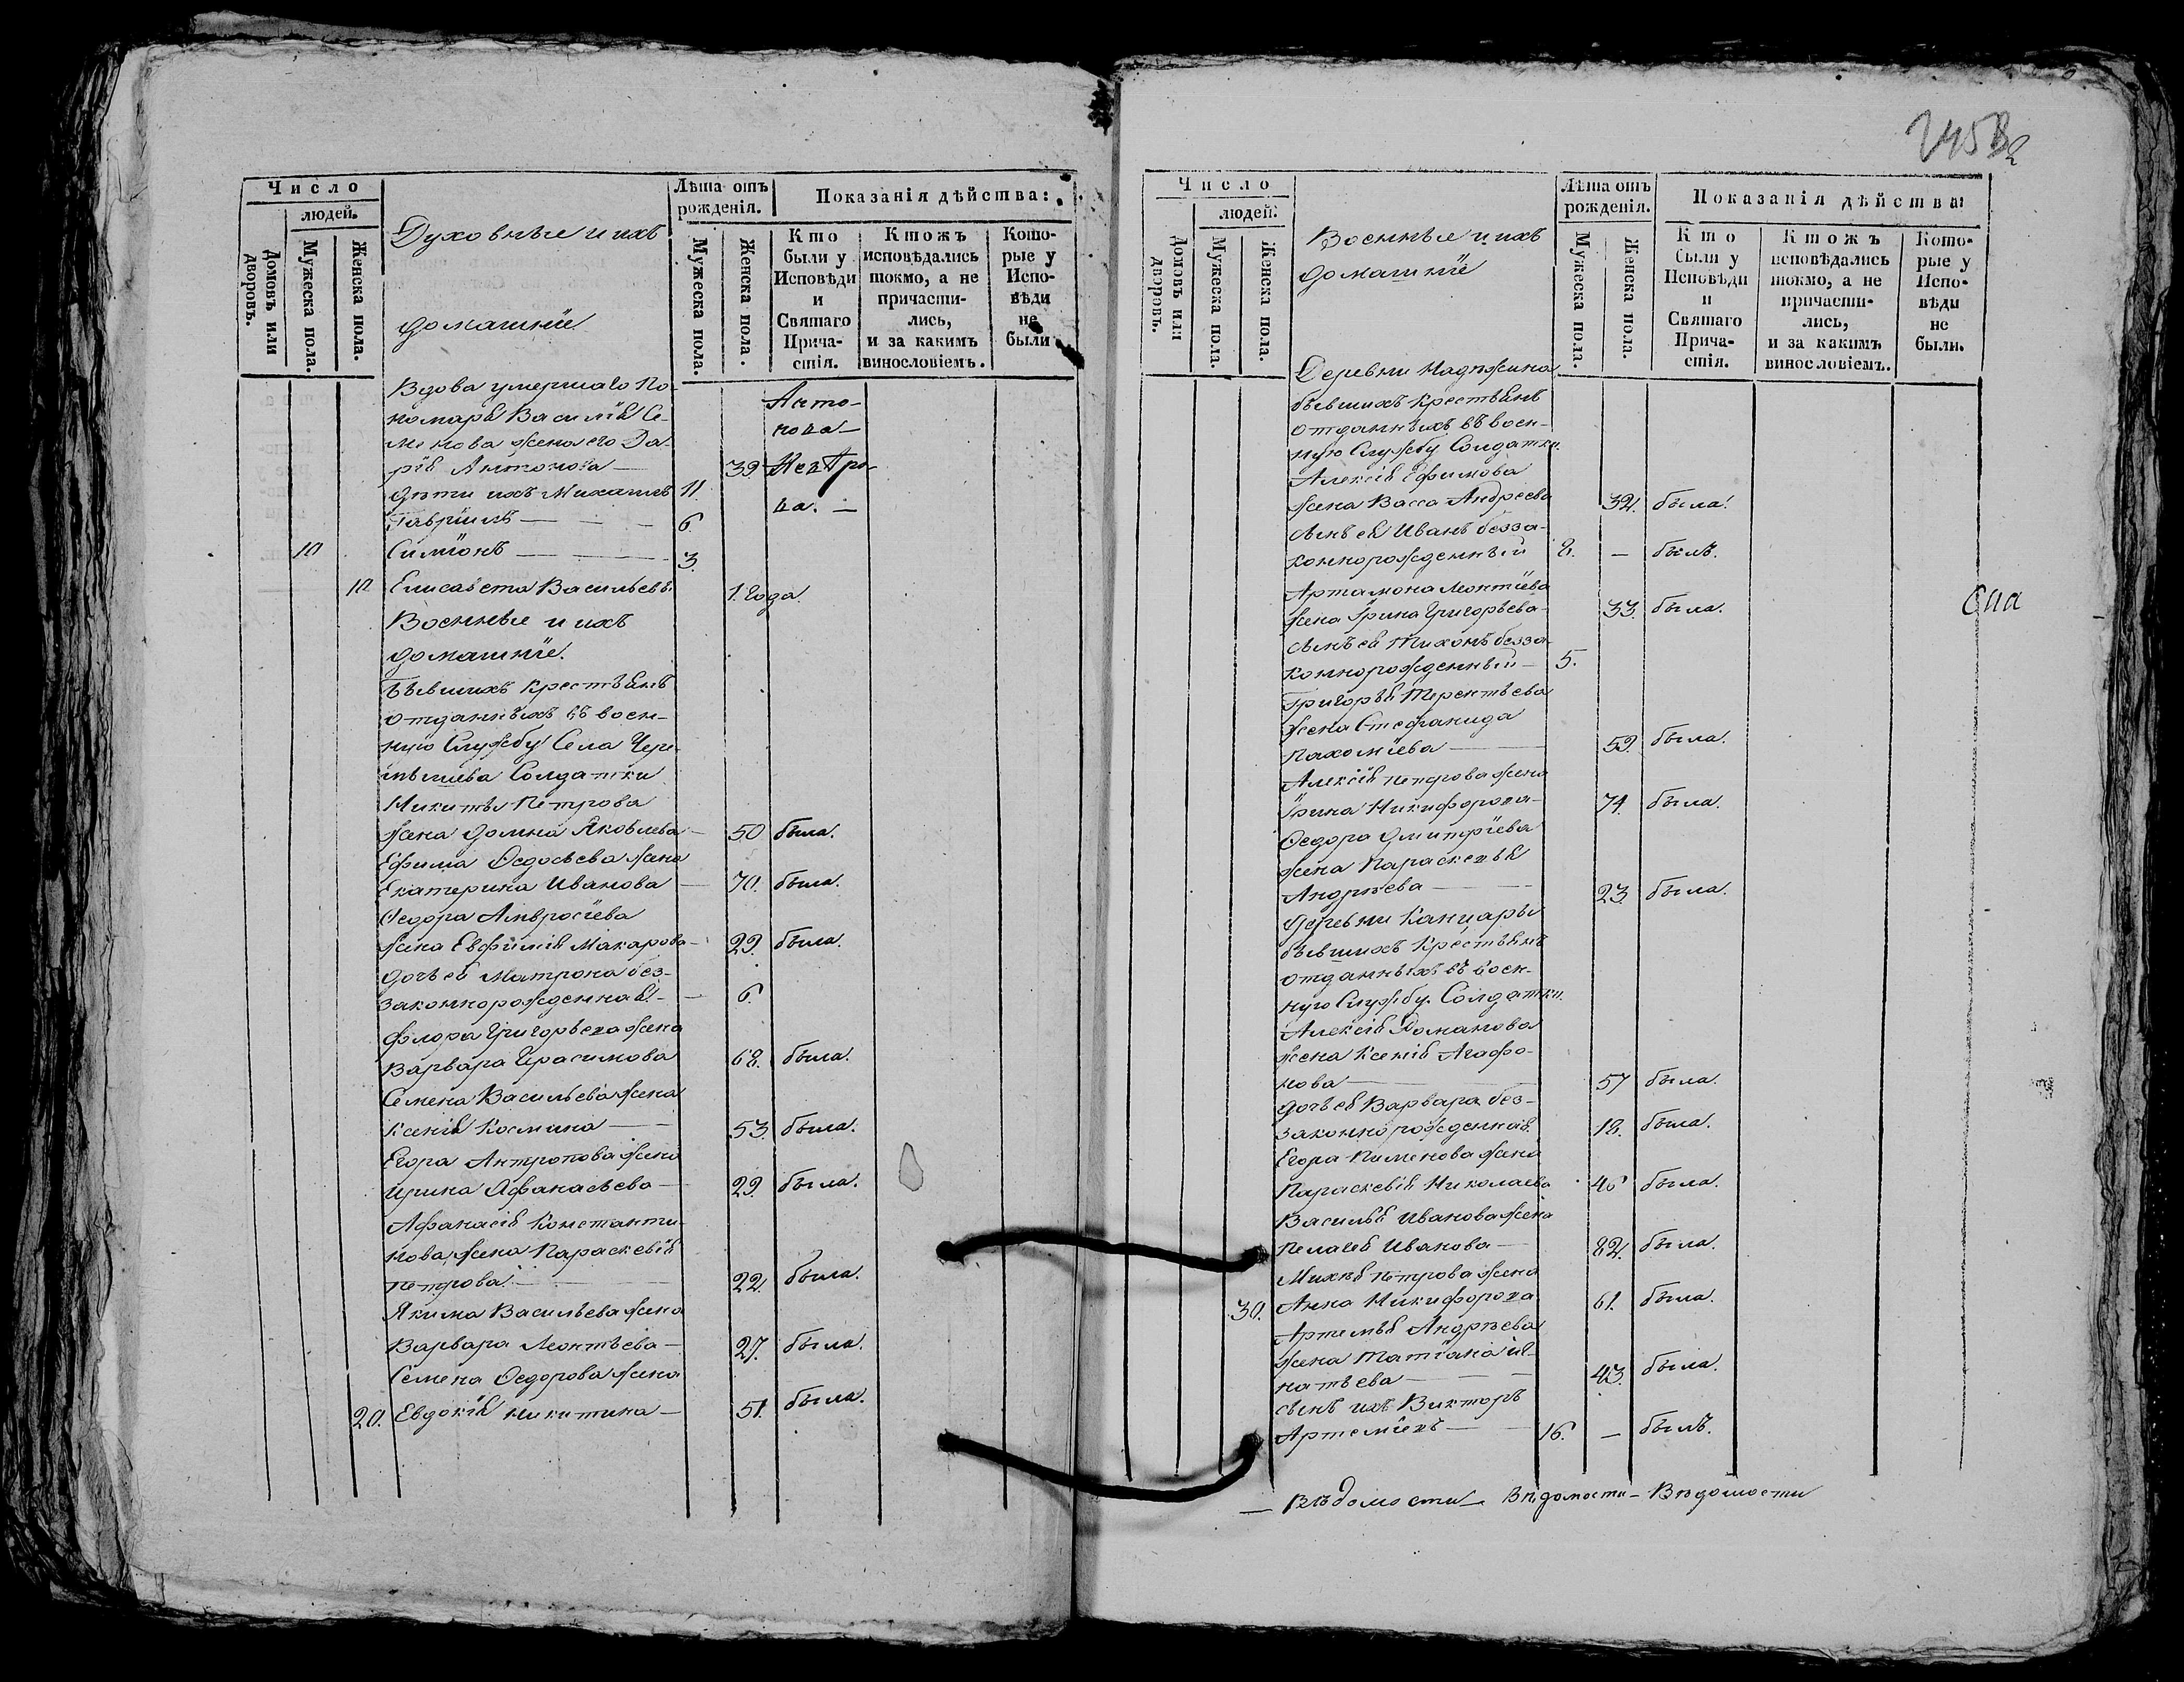 Число
людей.
Домовъ или дворовъ.
Мужеска пола.
Женска пола.
Духовные и ихъ
домашніе
Лѣта отъ рожденія.
Мужеска пола.
Женска пола.
Показанія дѣйства:
Кто были у Исповѣди и Святаго Прича- стія.
Ктожъ исповѣдались токмо, а не причасти- лись, и за какимъ винословіемъ.
Кото- рые у Испо- вѣди не были
Вдова умершаго по-
номаря Василія Се-
менова жена его Да-
рія Антонова — 39
дѣти ихъ Михаилъ 11.
Гавріилъ — — — 6
10 Симіонъ — — 3.
10 Елисавета Васильевы 1. года.
Военные и ихъ
домашніе.
Бывшихъ крестьянъ
отданныхъ въ воен-
ную службу Села
Солдатки
Никиты Петрова
жена Домна Яковлева — 50 была.
Ефима Ѳедосѣева жена
Екатерина Иванова — 70. была.
Ѳедора Амвросіева
жена Евфимія Макарова — 29. была.
дочь ея Матрона без-
законнорожденная — — 6.
Флора Григорьева жена
Варвара Герасимова 68. была.
Семена Васильева жена
Ксенія Космина — 53. была.
Егора Антропова жена
Ирина Афанасьева — 29. была.
Афанасія Константи-
нова жена Параскевія
Петрова. — 22. была.
Якима Васильева жена
Варвара Леонтьева — 27. была.
Семена Ѳедорова жена
20. Евдокія Никитина — 51. была.
Число
людей.
Домовъ или дворовъ.
Мужеска пола.
Женска пола.
Военные и ихъ
домашніе
Лѣта отъ рожденія.
Мужеска пола.
Женска пола.
Показанія дѣйства:
Кто были у Исповѣди и Святаго Прича- стія.
Ктожъ исповѣдались токмо, а не причасти- лись, и за какимъ винословіемъ.
Кото- рые у Испо- вѣди не были.
Деревни Надежина
бывшихъ крестьянъ
отданныхъ въ воен-
ную службу Солдатки.
Алексія Ефимова
жена Васса Андреева 32. была.
сынъ ея Иванъ безза-
коннорожденный 8. — былъ.
Артамона Леонтіева
жена Ірина Григорьева — 33. была.
сынъ ея Тихонъ безза-
коннорожденный — 5.
Григорья Терентьева
жена Стефанида
Пахоміева — 59. была.
Алексія Петрова жена
Ірина Никифорова — 74. была.
Ѳедора Дмитріева
жена Параскевія
Андрѣева — 23 была.
деревни Канцары
бывшихъ крестьянъ
отданныхъ въ воен-
ную службу Солдатки.
Алексія Романова
жена Ксенія Агафо-
нова — 57 была.
дочь ея Варвара без-
законнорожденная. 18. была.
Егора Пименова жена
Параскевія Николаева 46 была.
Василья Иванова жена
Пелагея Иванова — 82. была.
Михея Петрова жена
30. Анна Никифорова 61. была.
Артемья Андрѣева
жена Татіана Иг-
натьева — 43. была.
сынъ ихъ Викторъ
Артеміевъ — 16. — былъ.
— Вѣдомости — Вѣдомости — Вѣдомости